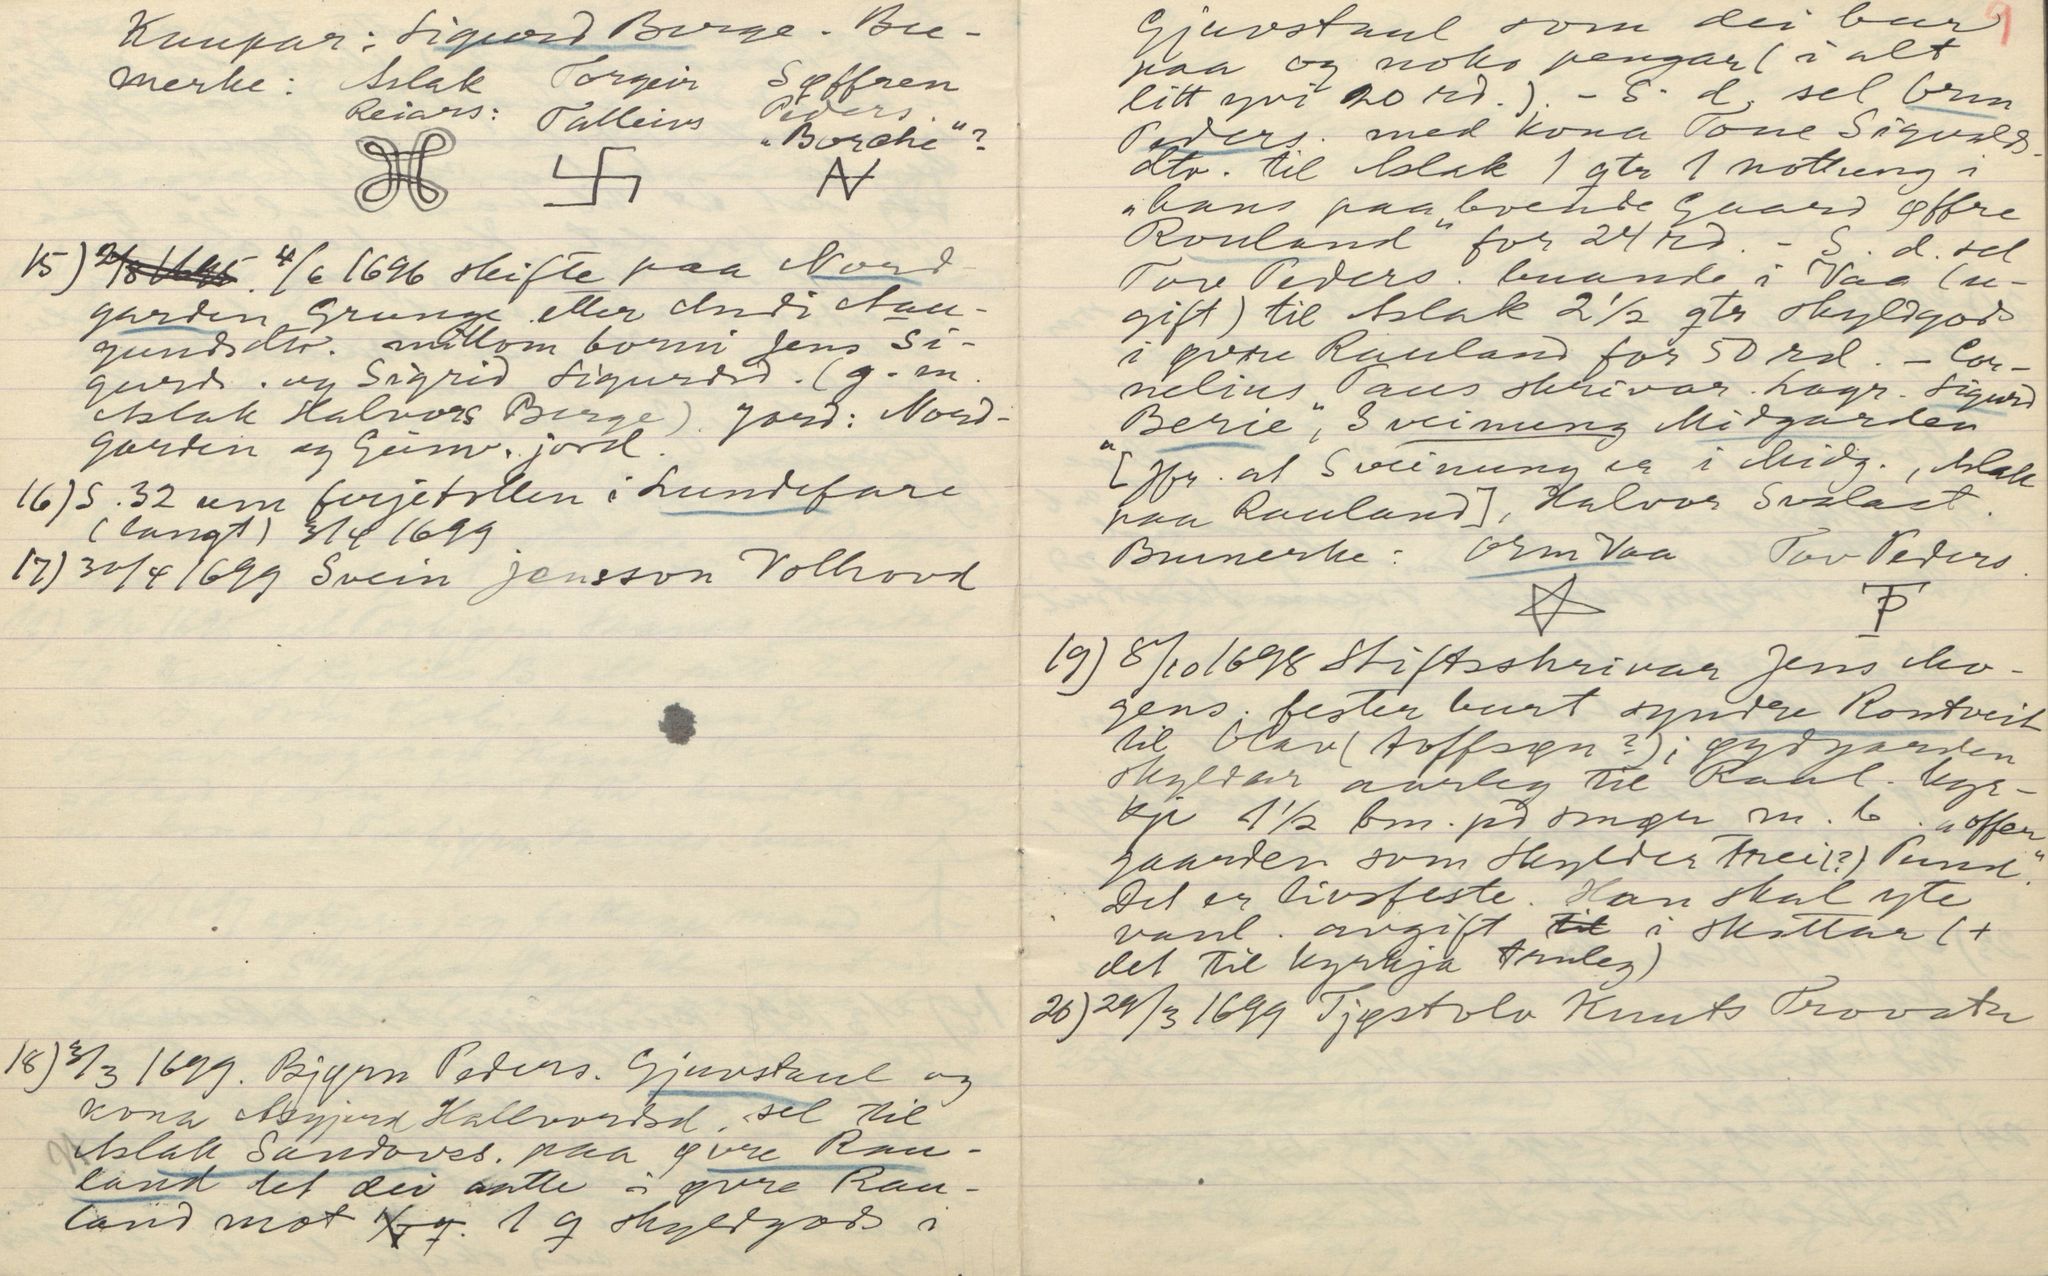 Kaupar: Sigurd Berge. Bu-
merke: Aslak Torgeir Søffren
Reiars: Talleivs Peders.
"Borche"?
15) 4/6 1696 skifte paa Nord-
garden Grunge etter Aadi Aan-
undsdtr. millom borni Jens Si-
gurds. og Sigrid Sigurdsd. (g. m.
Aslak Halvors Berge). Jord: Nord-
garden og Grimv. jord.
16) S. 32 um ferjetollen i Lundefare
(langt) 3/4 1699
17) 30/4 1699 Svein Jensson Vollrovd
18) 3/3 1699. Bjørn Peders. Gjuvstaul og
kona Asgjerd Hallvordsd. sel til
Aslak Sandovss. paa øvre Rau-
land det dei aatte i øvre Rau-
land mot 1 q skyldgods i
9
Gjuvstaul som dei bur
paa og noko pengar (i alt
litt yvi 20 rd.). - S. d. sel Orm
Peders. med kona Tone Sigurds-
dtr. til Aslak 1 qtr 1 nottung i
"hans paaboende Gaard øffre
Rouland" for 24 rd. - S. d. sel
Tov Peders. buande i Vaa (u-
gift) til Aslak 2 1/2 qtr skyldgods
i øvre Rauland for 50 rd. - Cor-
nelius Paus skrivar. Lagr. Sigurd
Berie", Sveinung Midgarden
"[Jfr. at Sveinung er i Midg., Aslak
paa Rauland], Halvor Svalast.
Bumerke: Orm Vaa Tov Peders.
TP
19) 8/10 1698 Stiftsskrivar Jens Mo-
gens. fester burt syndre Rontveit
til Olav (Aoffsøn?); øydgarden
skyldar aarleg til Raul. kyr-
kje 1 1/2 bm. på smør m. b. "offer
gaarden som skylder trei(?) Pund."
Det er livsfeste. Han skal yte
vanl. avgift til i skattar (+
det til kyrkja truleg)
20) 29/3 1699 Tjøstolv Knuts Trovatn